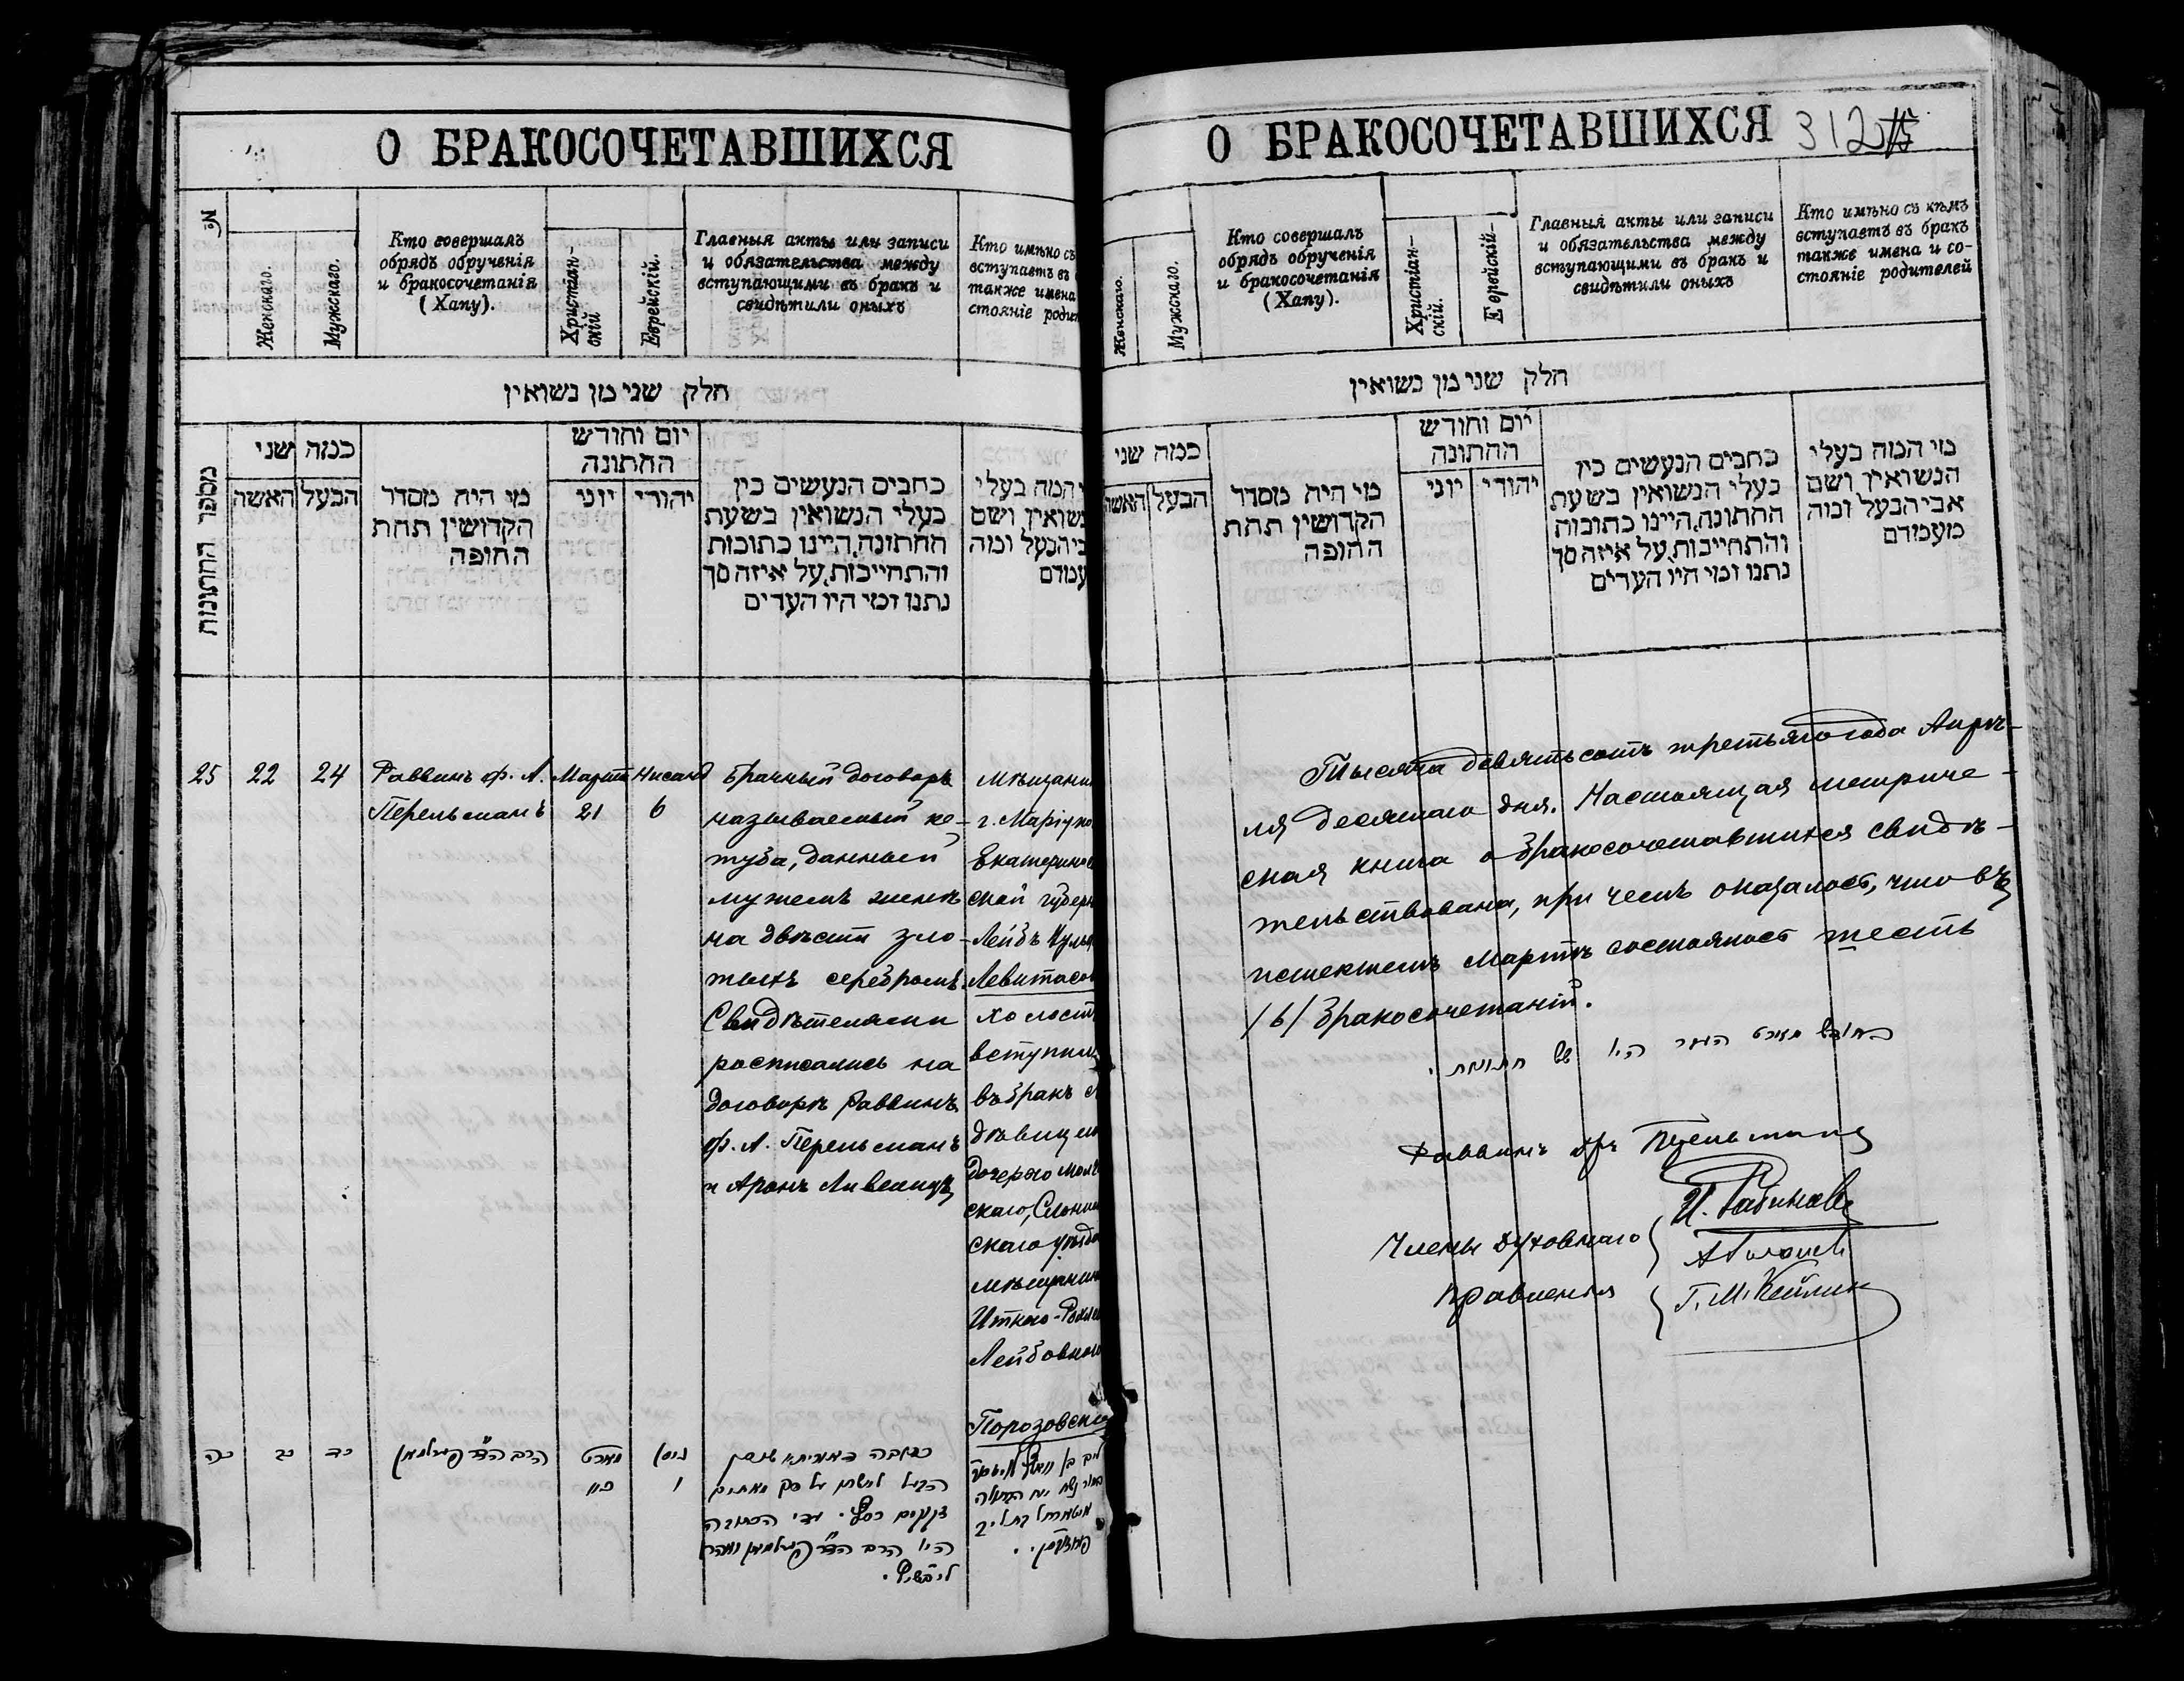 О БРАКОСОЧЕТАВШИХСЯ
№
Женскаго.
Мужскаго.
Кто совершалъ
обрядъ обрученія
и бракосочетанія
(Хапу).
Христіан-
скій
Еврейскій.
Главныя акты или записи
и обязательства между
вступающими въ бракъ и
свидѣтили оныхъ
Кто имѣно съ
вступаетъ въ
также имена
стояніе роди
חלק שני מן נשואין
מספר החתונות
כמה שני
האשה
הבעל
מי היה מסדר
הקדושין תחת
החופה
יום וחודש
החתונה
יוני
יהודי
כתבים הנעשים בין
בעלי הנשואין בשעת
החתונה, היינו כתובות
והתחייבות, על איזה סך
נתנו ומי היו העדים
המה בעלי
נשואין ושם
הבעל ומה
עמדם
25
22
24
Раввинъ Ф. А.
Перельманъ
Марта
21
Нисанд
6
Брачный договоръ
называемый ке-
туба, данный
мужемъ женѣ
на двѣсти зло-
тыхъ серебромъ.
Свидѣтелями
росписались на
договорѣ Раввинъ
Ф. А. Перельманъ
и Аронъ Лившицъ
мѣщани
г. Маріупо
Екатерино
ской губерн
Лейбъ
Левитасо
холост
вступилъ
въ бракъ с
дѣвицею
дочерью
скаго, Слоним
скаго уѣзда
мѣщанин
Иткою-Рохлею
Лейбовною
Порозовско
כה
כב
כד
הרב הד״ר פערלמאן
מארט
ניסן
ו
О БРАКОСОЧЕТАВШИХСЯ 312
Женскаго.
Мужскаго.
Кто совершалъ
обрядъ обрученія
и бракосочетанія
(Хапу).
Христіан-
скій.
Еврейскій.
Главныя акты или записи
и обязательства между
вступающими въ бракъ и
свидѣтили оныхъ
Кто имѣно съ кѣмъ
вступаетъ въ бракъ
также имена и со-
стояніе родителей
חלק שני מן נשואין
כמה שני
האשה
הבעל
מי היה מסדר
הקדושין תחת
החופה
יום וחודש
החתונה
יוני
יהודי
כתבים הנעשים בין
בעלי הנשואין בשעת
החתונה, היינו כתובות
והתחייבות, על איזה סך
נתנו ומי היו העדים
מי המה בעלי
הנשואין ושם
אבי הבעל ומה
מעמדם
Тысяча девятьсотъ третьяго года Апрѣ-
ля десятаго дня. Настоящая метриче-
ская книга о бракосочетавшихся свидѣ-
тельствована, при чемъ оказалось, что въ
истекшемъ Мартѣ состоялось шесть
/6/ бракосочетаній.
בחודש מארט העבר היו שש חתונות.
Раввинъ Др. Перельманъ
Члены Духовнаго
Правленія
И. Рабинов
Г. М. Кейлин